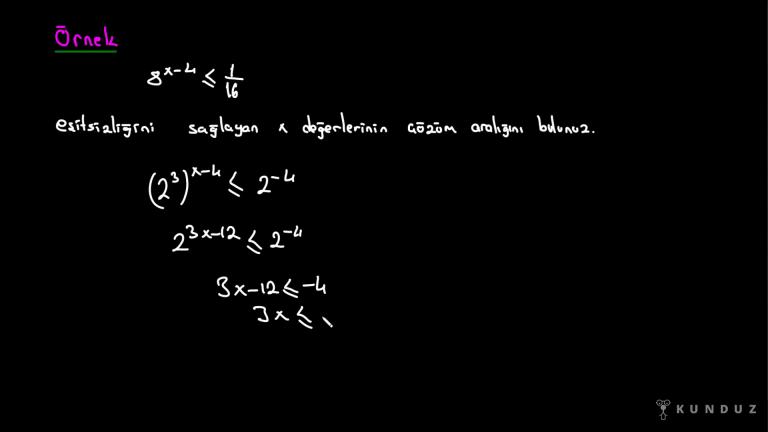 Örnek
8^{x-4} ≤ 1/16
eşitsizliğini sağlayan x değerlerinin çözüm aralığını bulunuz.
(2^3)^{x-4} ≤ 2^{-4}
2^{3x-12} ≤ 2^{-4}
3x-12 ≤ -4
3x ≤
KUNDUZ